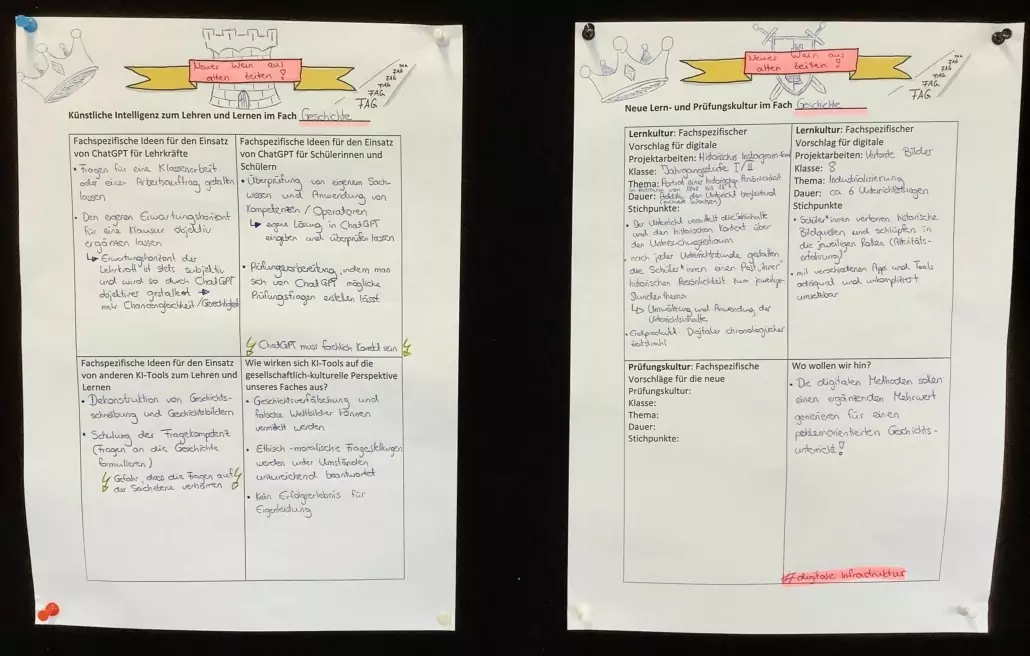 Neuer Wein aus
alten Zeiten!
FAG
FAG
FAG
FAG
FAG
Künstliche Intelligenz zum Lehren und Lernen im Fach Geschichte
Fachspezifische Ideen für den Einsatz
von ChatGPT für Lehrkräfte
• Fragen für eine Klassenarbeit
oder einen Arbeitsauftrag gestalten
lassen
• Den eigenen Erwartungshorizont
für eine Klausur objektiv
ergänzen lassen
↳ Erwartungshorizont der
Lehrkraft ist stets subjektiv
und wird so durch ChatGPT
objektiver gestaltet →
mehr Chancengleichheit/Gerechtigkeit
Fachspezifische Ideen für den Einsatz
von ChatGPT für Schülerinnen und
Schülern
• Überprüfung von eigenem Sach-
wissen und Anwendung von
Kompetenzen / Operatoren
↳ eigene Lösung in ChatGPT
eingeben und überprüfen lassen
• Prüfungsvorbereitung, indem man
sich von ChatGPT mögliche
Prüfungsfragen erstellen lässt
ChatGPT muss fachlich korrekt sein
Fachspezifische Ideen für den Einsatz
von anderen KI-Tools zum Lehren und
Lernen
• Dekonstruktion von Geschichts-
schreibung und Geschichtsbildern
• Schulung der Fragekompetenz
(Fragen an die Geschichte
formulieren)
Gefahr, dass die Fragen auf
der Sachebene verharren
Wie wirken sich KI-Tools auf die
gesellschaftlich-kulturelle Perspektive
unseres Faches aus?
• Geschichtsverfälschung und
falsche Weltbilder können
vermittelt werden
• Ethisch-moralische Fragestellungen
werden unter Umständen
unzureichend beantwortet
• Kein Erfolgserlebnis für
Eigenleistung
Neuer Wein aus
alten Zeiten!
FAG
FAG
FAG
FAG
FAG
Neue Lern- und Prüfungskultur im Fach Geschichte
Lernkultur: Fachspezifischer
Vorschlag für digitale
Projektarbeiten: Historisches Instagram
Klasse: Jahrgangsstufe I/II
Thema: Porträt einer historischen Persönlichkeit
Dauer: den Unterricht begleitend
(mehrere Wochen)
Stichpunkte:
• Der Unterricht vermittelt die Sachinhalte
und den historischen Kontext über
den Untersuchungszeitraum
• nach jeder Unterrichtsstunde gestalten
die Schüler*innen einen Post „ihrer"
historischen Persönlichkeit zum jeweiligen
Stundenthema
↳ Umwälzung und Anwendung der
Unterrichtsinhalte
• Endprodukt: Digitaler chronologischer
Zeitstrahl
Lernkultur: Fachspezifischer
Vorschlag für digitale
Projektarbeiten: Vertonte Bilder
Klasse: 8
Thema: Industrialisierung
Dauer: ca 6 Unterrichtsstunden
Stichpunkte
• Schüler*innen vertonen historische
Bildquellen und schlüpfen in
die jeweiligen Rollen (Alteritäts-
erfahrung)
• mit verschiedenen Apps und Tools
adäquat und unkompliziert
umsetzbar
Prüfungskultur: Fachspezifische
Vorschläge für die neue
Prüfungskultur:
Klasse:
Thema:
Dauer:
Stichpunkte:
Wo wollen wir hin?
• Die digitalen Methoden sollen
einen ergänzenden Mehrwert
generieren für einen
problemorientierten Geschichts-
unterricht!
# digitale Infrastruktur